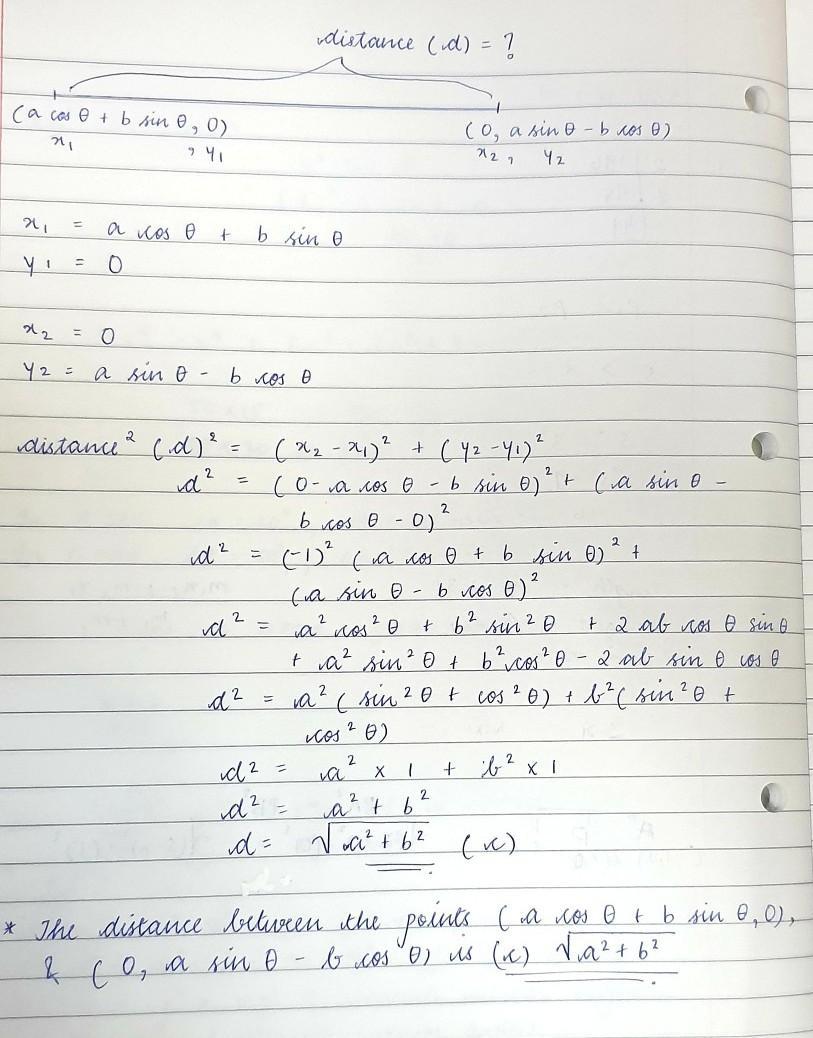 distance (d) = ?
(a cos θ + b sin θ, 0)
(0, a sin θ - b cos θ)
x₁ , y₁
x₂ , y₂
x₁ = a cos θ + b sin θ
y₁ = 0
x₂ = 0
y₂ = a sin θ - b cos θ
distance² (d)² = (x₂ - x₁)² + (y₂ - y₁)²
d² = (0 - a cos θ - b sin θ)² + (a sin θ -
b cos θ - 0)²
d² = (-1)² (a cos θ + b sin θ)² +
(a sin θ - b cos θ)²
d² = a² cos² θ + b² sin² θ + 2 ab cos θ sin θ
+ a² sin² θ + b² cos² θ - 2 ab sin θ cos θ
d² = a² (sin² θ + cos² θ) + b² (sin² θ +
cos² θ)
d² = a² × 1 + b² × 1
d² = a² + b²
d = √a² + b² (c)
* The distance between the points (a cos θ + b sin θ, 0),
& (0, a sin θ - b cos θ) is (c) √a² + b².